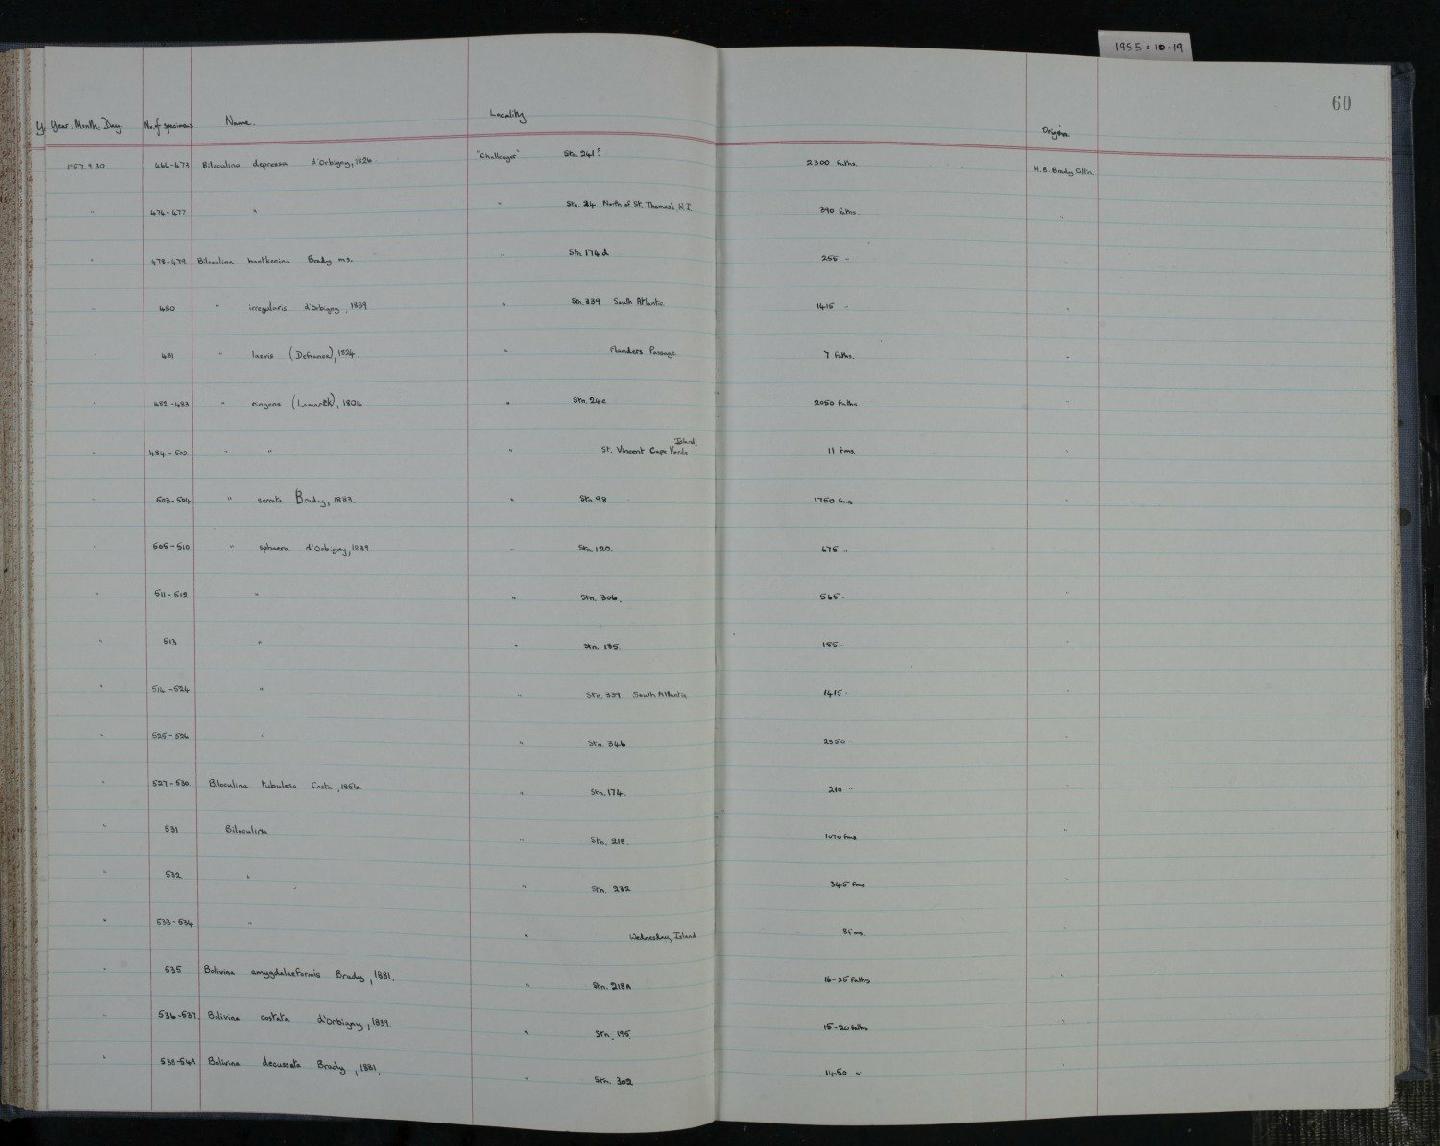 1955.10.19
60
Year. Month. Day No. of specimens Name. Locality Origin
1957.9.30 466-473 Biloculina depressa d'Orbigny, 1826 "Challenger" Stn. 241? 2300 faths. H.B. Brady Colln.
" 474-477 " " Stn. 24 North of St. Thomas's, W.I. 390 faths. "
" 478-479 Biloculina hantkenina Brady ms. " Stn 174d 255 " "
" 480 " irregularis d'Orbigny, 1839 " Stn. 339 South Atlantic 1415 " "
" 481 " laevis (Defrance), 1824 " Flanders Passage 7 faths. "
" 482-483 " ringens (Lamarck), 1804 " Stn. 24c 2050 faths "
" 484-502 " " " St. Vincent Cape Verde Island. 11 fms. "
" 503-504 " serrata Brady, 1883 " Stn 98 1750 fms "
" 505-510 " sphaera d'Orbigny, 1839 " Stn. 120. 675 " "
" 511-512 " " Stn. 306. 565 " "
" 513 " " Stn. 185. 155 " "
" 514-524 " " Stn. 339 South Atlantic 1415 " "
" 525-526 " " Stn. 346 2350 "
" 527-530. Biloculina tubulosa Costa, 1856 " Stn. 174. 210 " "
" 531 Biloculina " Stn. 218. 1070 fms "
" 532 " " Stn. 232 345 fms "
" 533-534 " " Wednesday Island 8 fms. "
" 535 Bolivina amygdalaeformis Brady, 1881. " Stn. 218A 16-25 faths "
" 536-537 Bolivina costata d'Orbigny, 1839. " Stn. 195. 15-20 faths "
" 538-541 Bolivina decussata Brady, 1881. " Stn. 302 1450 " "